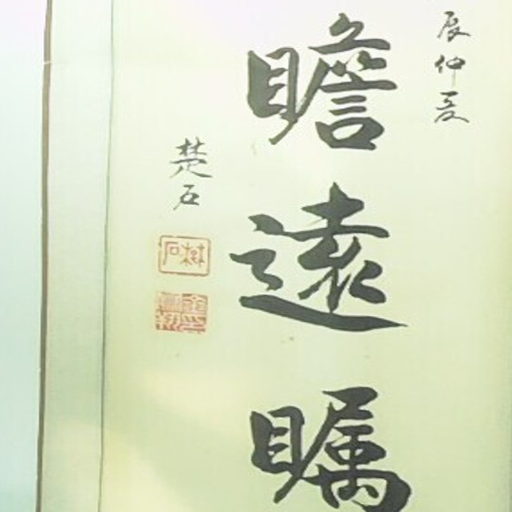 辰仲夏
瞻遠瞩
楚石